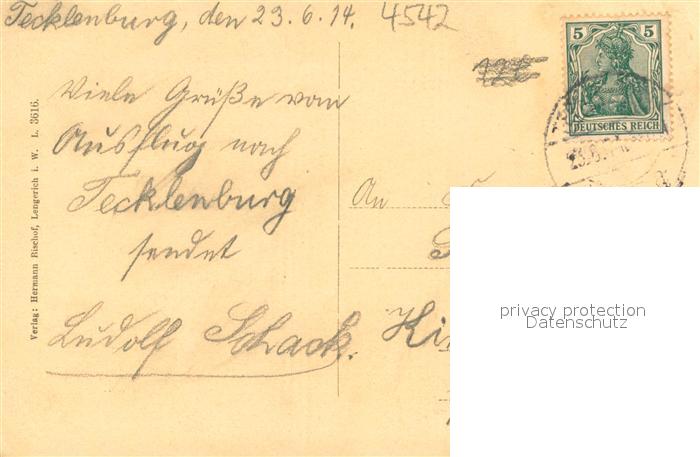 Tecklenburg, den 23.6.14. 4542
5 5
DEUTSCHES REICH
23.6.
Viele Grüße vom
Ausflug nach
Tecklenburg
sendet
Ludolf Schack.
An
Verlag: Hermann Bischof, Lengerich i. W. L. 3616.
privacy protection
Datenschutz